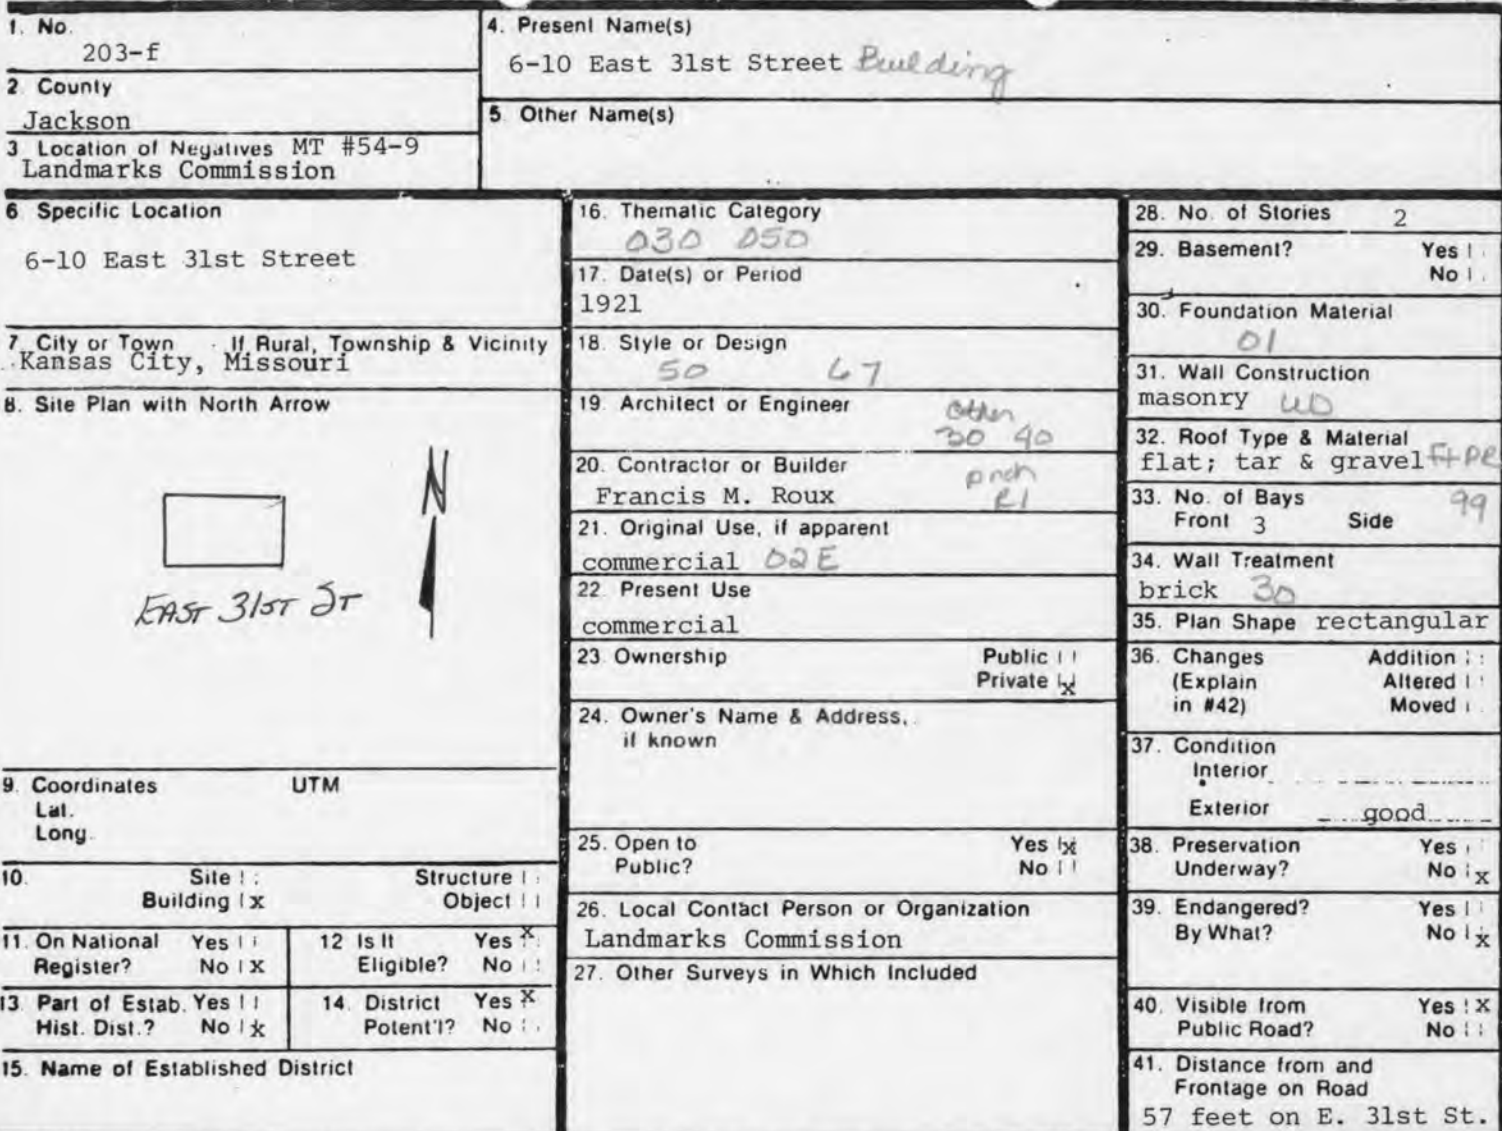 1. No.
203-f
2 County
Jackson
3 Location of Negatives MT #54-9
Landmarks Commission
4. Present Name(s)
6-10 East 31st Street Building
5. Other Name(s)
6 Specific Location
6-10 East 31st Street
7 City or Town If Rural, Township & Vicinity
Kansas City, Missouri
8. Site Plan with North Arrow
N
EAST 31ST ST
9. Coordinates UTM
Lat.
Long.
10. Site Structure
Building x Object
11. On National Yes
Register? No X
12 Is It Yes X
Eligible? No
13 Part of Estab. Yes
Hist. Dist.? No x
14. District Yes X
Potent'l? No
15. Name of Established District
16. Thematic Category
030 050
17. Date(s) or Period
1921
18. Style or Design
50 67
19. Architect or Engineer other
30 40
20. Contractor or Builder
Francis M. Roux
21. Original Use, if apparent
commercial 02E
22 Present Use
commercial
23 Ownership Public
Private x
24. Owner's Name & Address,
if known
25. Open to Yes x
Public? No
26. Local Contact Person or Organization
Landmarks Commission
27. Other Surveys in Which Included
28. No. of Stories 2
29. Basement? Yes
No
30. Foundation Material
01
31. Wall Construction
masonry
32. Roof Type & Material
flat; tar & gravel
33. No. of Bays 99
Front 3 Side
34. Wall Treatment
brick 30
35. Plan Shape rectangular
36. Changes Addition
(Explain Altered
in #42) Moved
37. Condition
Interior
Exterior good
38. Preservation Yes
Underway? No x
39. Endangered? Yes
By What? No x
40. Visible from Yes X
Public Road? No
41. Distance from and
Frontage on Road
57 feet on E. 31st St.